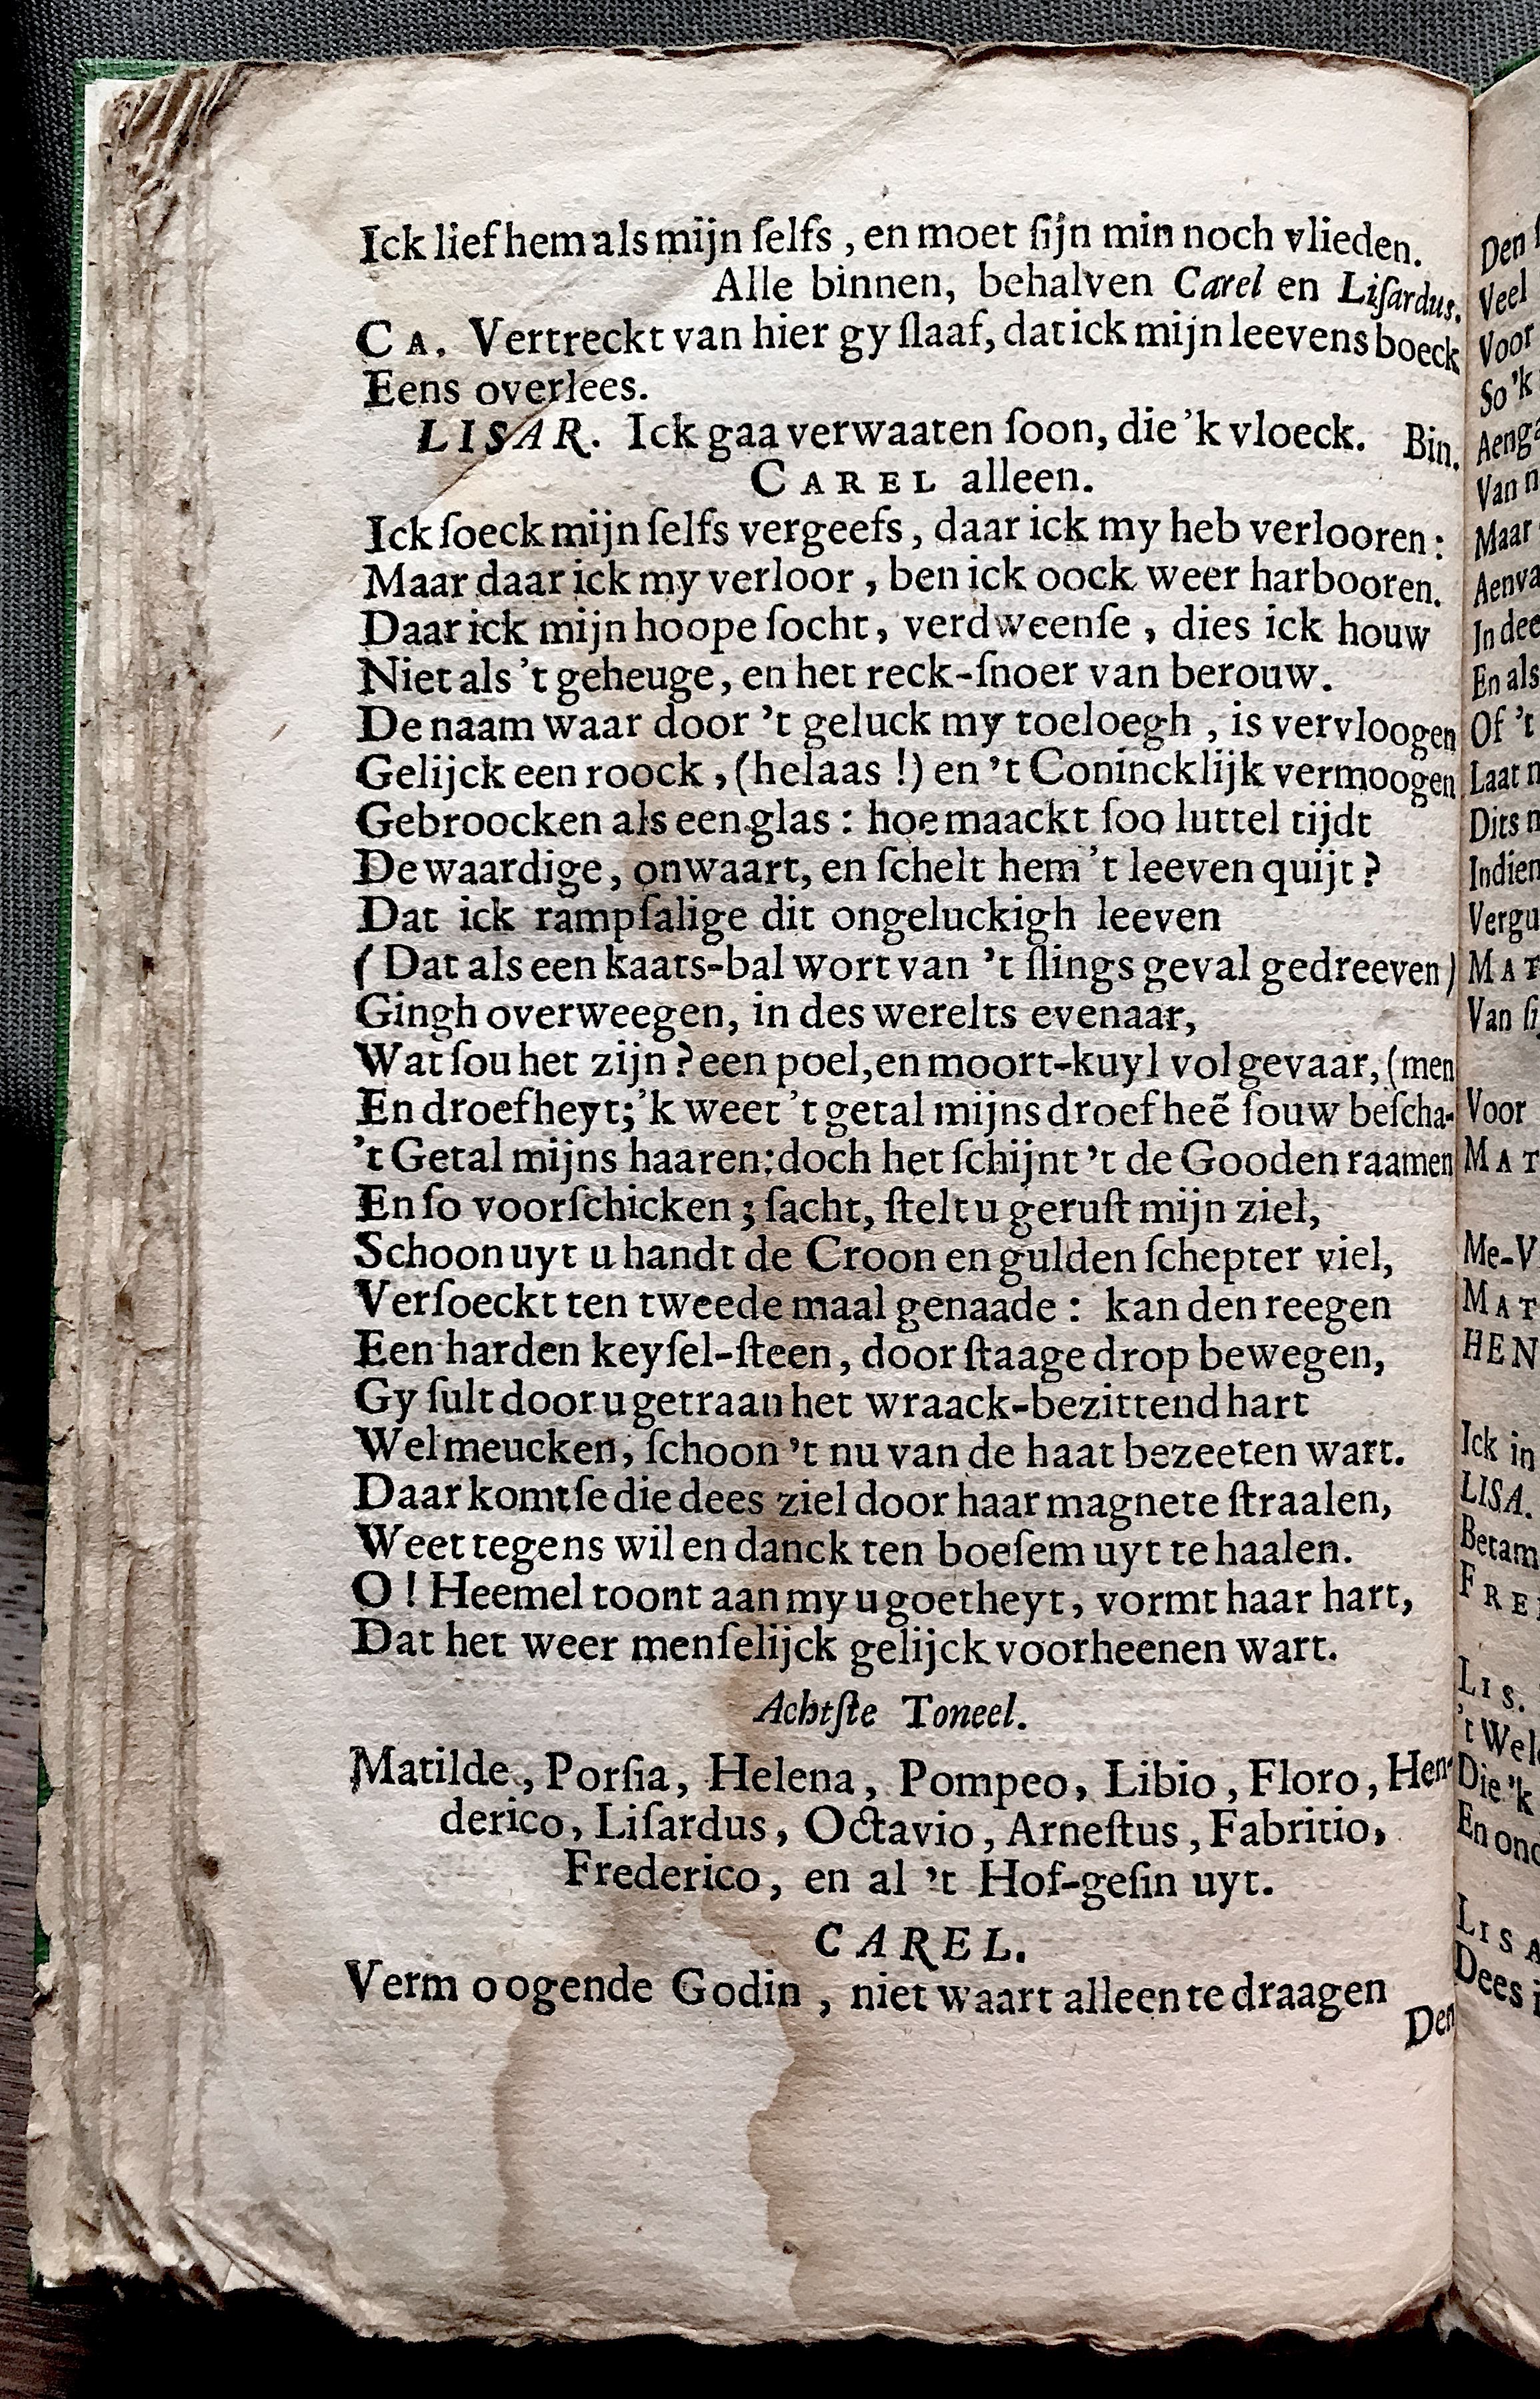 Ick lief hem als mijn ſelfs, en moet ſijn min noch vlieden.
Alle binnen, behalven Carel en Liſardus.
CA. Vertreckt van hier gy ſlaaf, dat ick mijn leevens boeck
Eens overlees.
LISAR. Ick gaa verwaaten ſoon, die 'k vloeck. Bin.
CAREL alleen.
Ick ſoeck mijn ſelfs vergeefs, daar ick my heb verlooren:
Maar daar ick my verloor, ben ick oock weer harbooren.
Daar ick mijn hoope ſocht, verdweenſe, dies ick houw
Niet als 't geheuge, en het reck-ſnoer van berouw.
De naam waar door 't geluck my toeloegh, is vervloogen
Gelijck een roock, (helaas!) en 't Conincklijk vermoogen
Gebroocken als een glas: hoe maackt ſoo luttel tijdt
De waardige, onwaart, en ſchelt hem 't leeven quijt?
Dat ick rampſalige dit ongeluckigh leeven
(Dat als een kaats-bal wort van 't ſlings geval gedreeven)
Gingh overweegen, in des werelts evenaar,
Wat ſou het zijn? een poel, en moort-kuyl vol gevaar, (men
En droefheyt; 'k weet 't getal mijns droefheẽ ſouw beſcha-
't Getal mijns haaren: doch het ſchijnt 't de Gooden raamen
En ſo voorſchicken; ſacht, ſtelt u geruſt mijn ziel,
Schoon uyt u handt de Croon en gulden ſchepter viel,
Verſoeckt ten tweede maal genaade: kan den reegen
Een harden keyſel-ſteen, door ſtaage drop bewegen,
Gy ſult door u getraan het wraack-bezittend hart
Wel meucken, ſchoon 't nu van de haat bezeeten wart.
Daar komtſe die dees ziel door haar magnete ſtraalen,
Weet tegens wil en danck ten boeſem uyt te haalen.
O! Heemel toont aan my u goetheyt, vormt haar hart,
Dat het weer menſelijck gelijck voorheenen wart.
Achtſte Toneel.
Matilde, Porſia, Helena, Pompeo, Libio, Floro, Hen-
derico, Liſardus, Octavio, Arneſtus, Fabritio,
Frederico, en al 't Hof-geſin uyt.
CAREL.
Verm oogende Godin, niet waart alleen te draagen
Den
Den
Veel
Voor
So 'k
Aenga
Van n
Maar
Aenva
In dee
En als
Of 't
Laat n
Dits n
Indien
Vergu
MAT
Van ſi
Voor
MAT
Me-V
MAT
HEN
Ick in
LISA.
Betam
FRE
LIS.
't Wel
Die 'k
En ond
LISA
Dees i